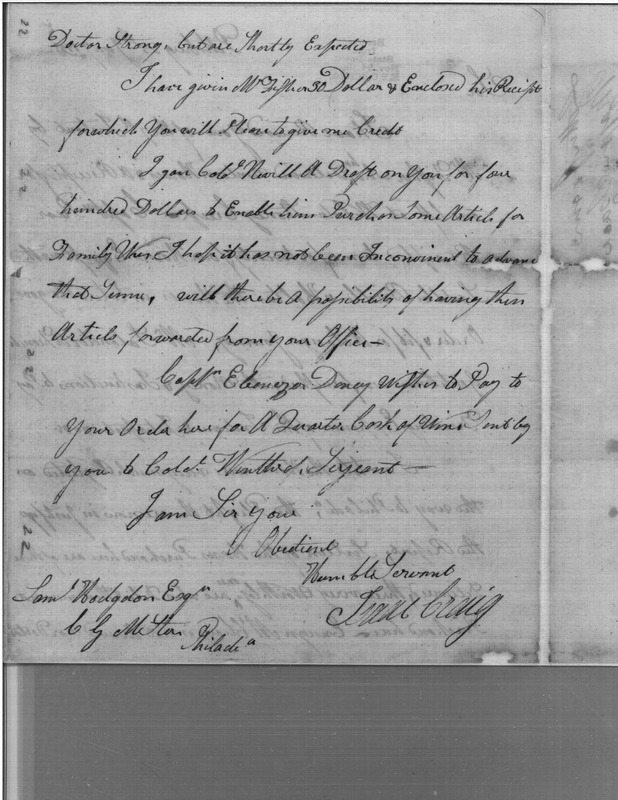 Doctor Strong, but are Shortly Expected.
I have givin Mr Fisher 30 Dollar & Enclosed his Receipt
for which You will Please to give me Credit
I gav Colo. Nevill A Draft on You for four
hundred Dollars to Enable him Purchas Some Article for
Family Uses I hope it has not been Inconvinent to advance
that Summ, will there be A possibility of having them
Article forwarded from your Office—
Captn Ebenezer Denny Wishes to Pay to
Your Order here for A Quarter Cask of Wine Sent by
you to Colo. Winthrop Sirjeant —
I am Sir your
Obedient
Humble Servant
Isaac Craig
Saml Hodgdon Esqr
C G M Stors
Philada
22